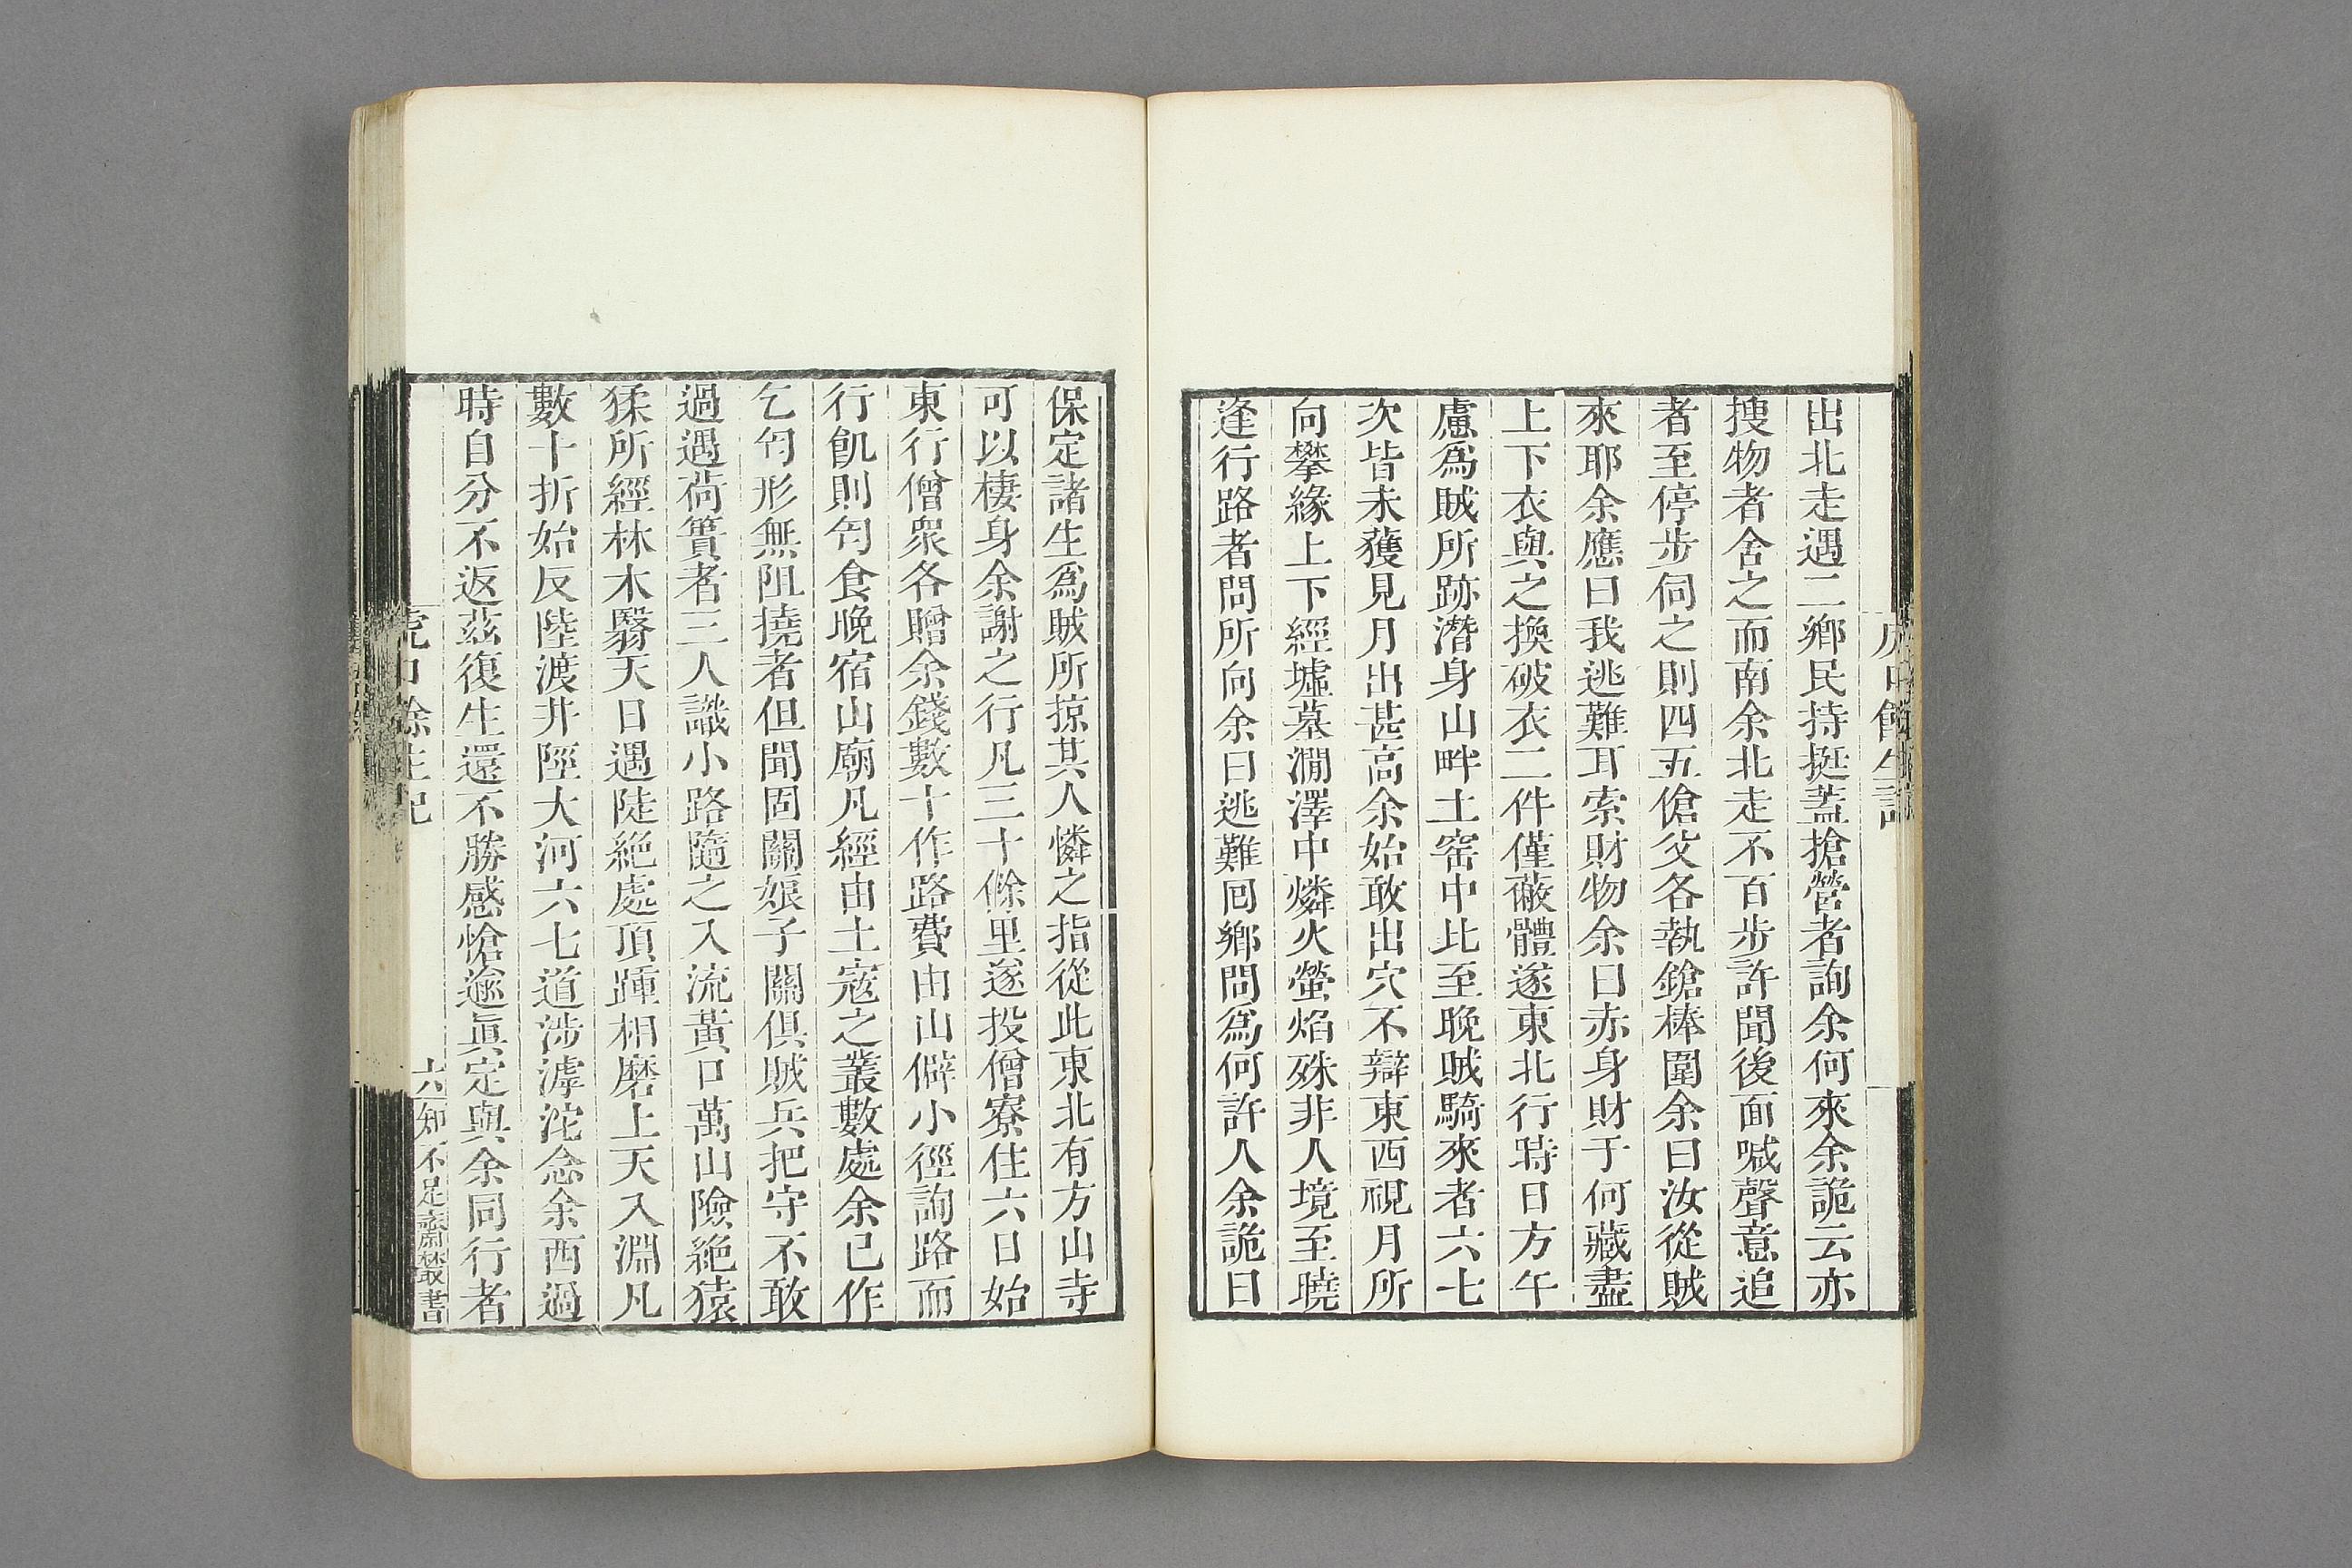 出北走遇二鄉民持挺蓋搶營者詢余何來余詭云亦
搜物者舍之而南余北走不百步許聞後面喊聲意追
者至停步伺之則四五傖父各執鎗棒圍余曰汝從賊
來耶余應曰我逃難耳索財物余曰赤身財于何藏盡
上下衣與之換破衣二件僅蔽體遂東北行時日方午
慮爲賊所跡潛身山畔土窰中比至晚賊騎來者六七
次皆未獲見月出甚高余始敢出穴不辯東西視月所
向攀緣上下經墟墓澗澤中燐火螢焰殊非人境至曉
逢行路者問所向余曰逃難囘鄉問爲何許人余詭曰
保定諸生爲賊所掠其人憐之指從此東北有方山寺
可以棲身余謝之行凡三十餘里遂投僧寮住六日始
東行僧衆各贈余錢數十作路費由山僻小徑詢路而
行飢則匄食晚宿山廟凡經由土寇之叢數處余已作
乞匄形無阻撓者但聞固關娘子關俱賊兵把守不敢
過遇荷簣者三人識小路隨之入流黃口萬山險絕猿
猱所經林木翳天日遇陡絕處頂踵相磨上天入淵凡
數十折始反陸渡井陘大河六七道涉滹沱念余西過
時自分不返茲復生還不勝感愴邇眞定與余同行者
虎口餘生記
六
知不足齋叢書